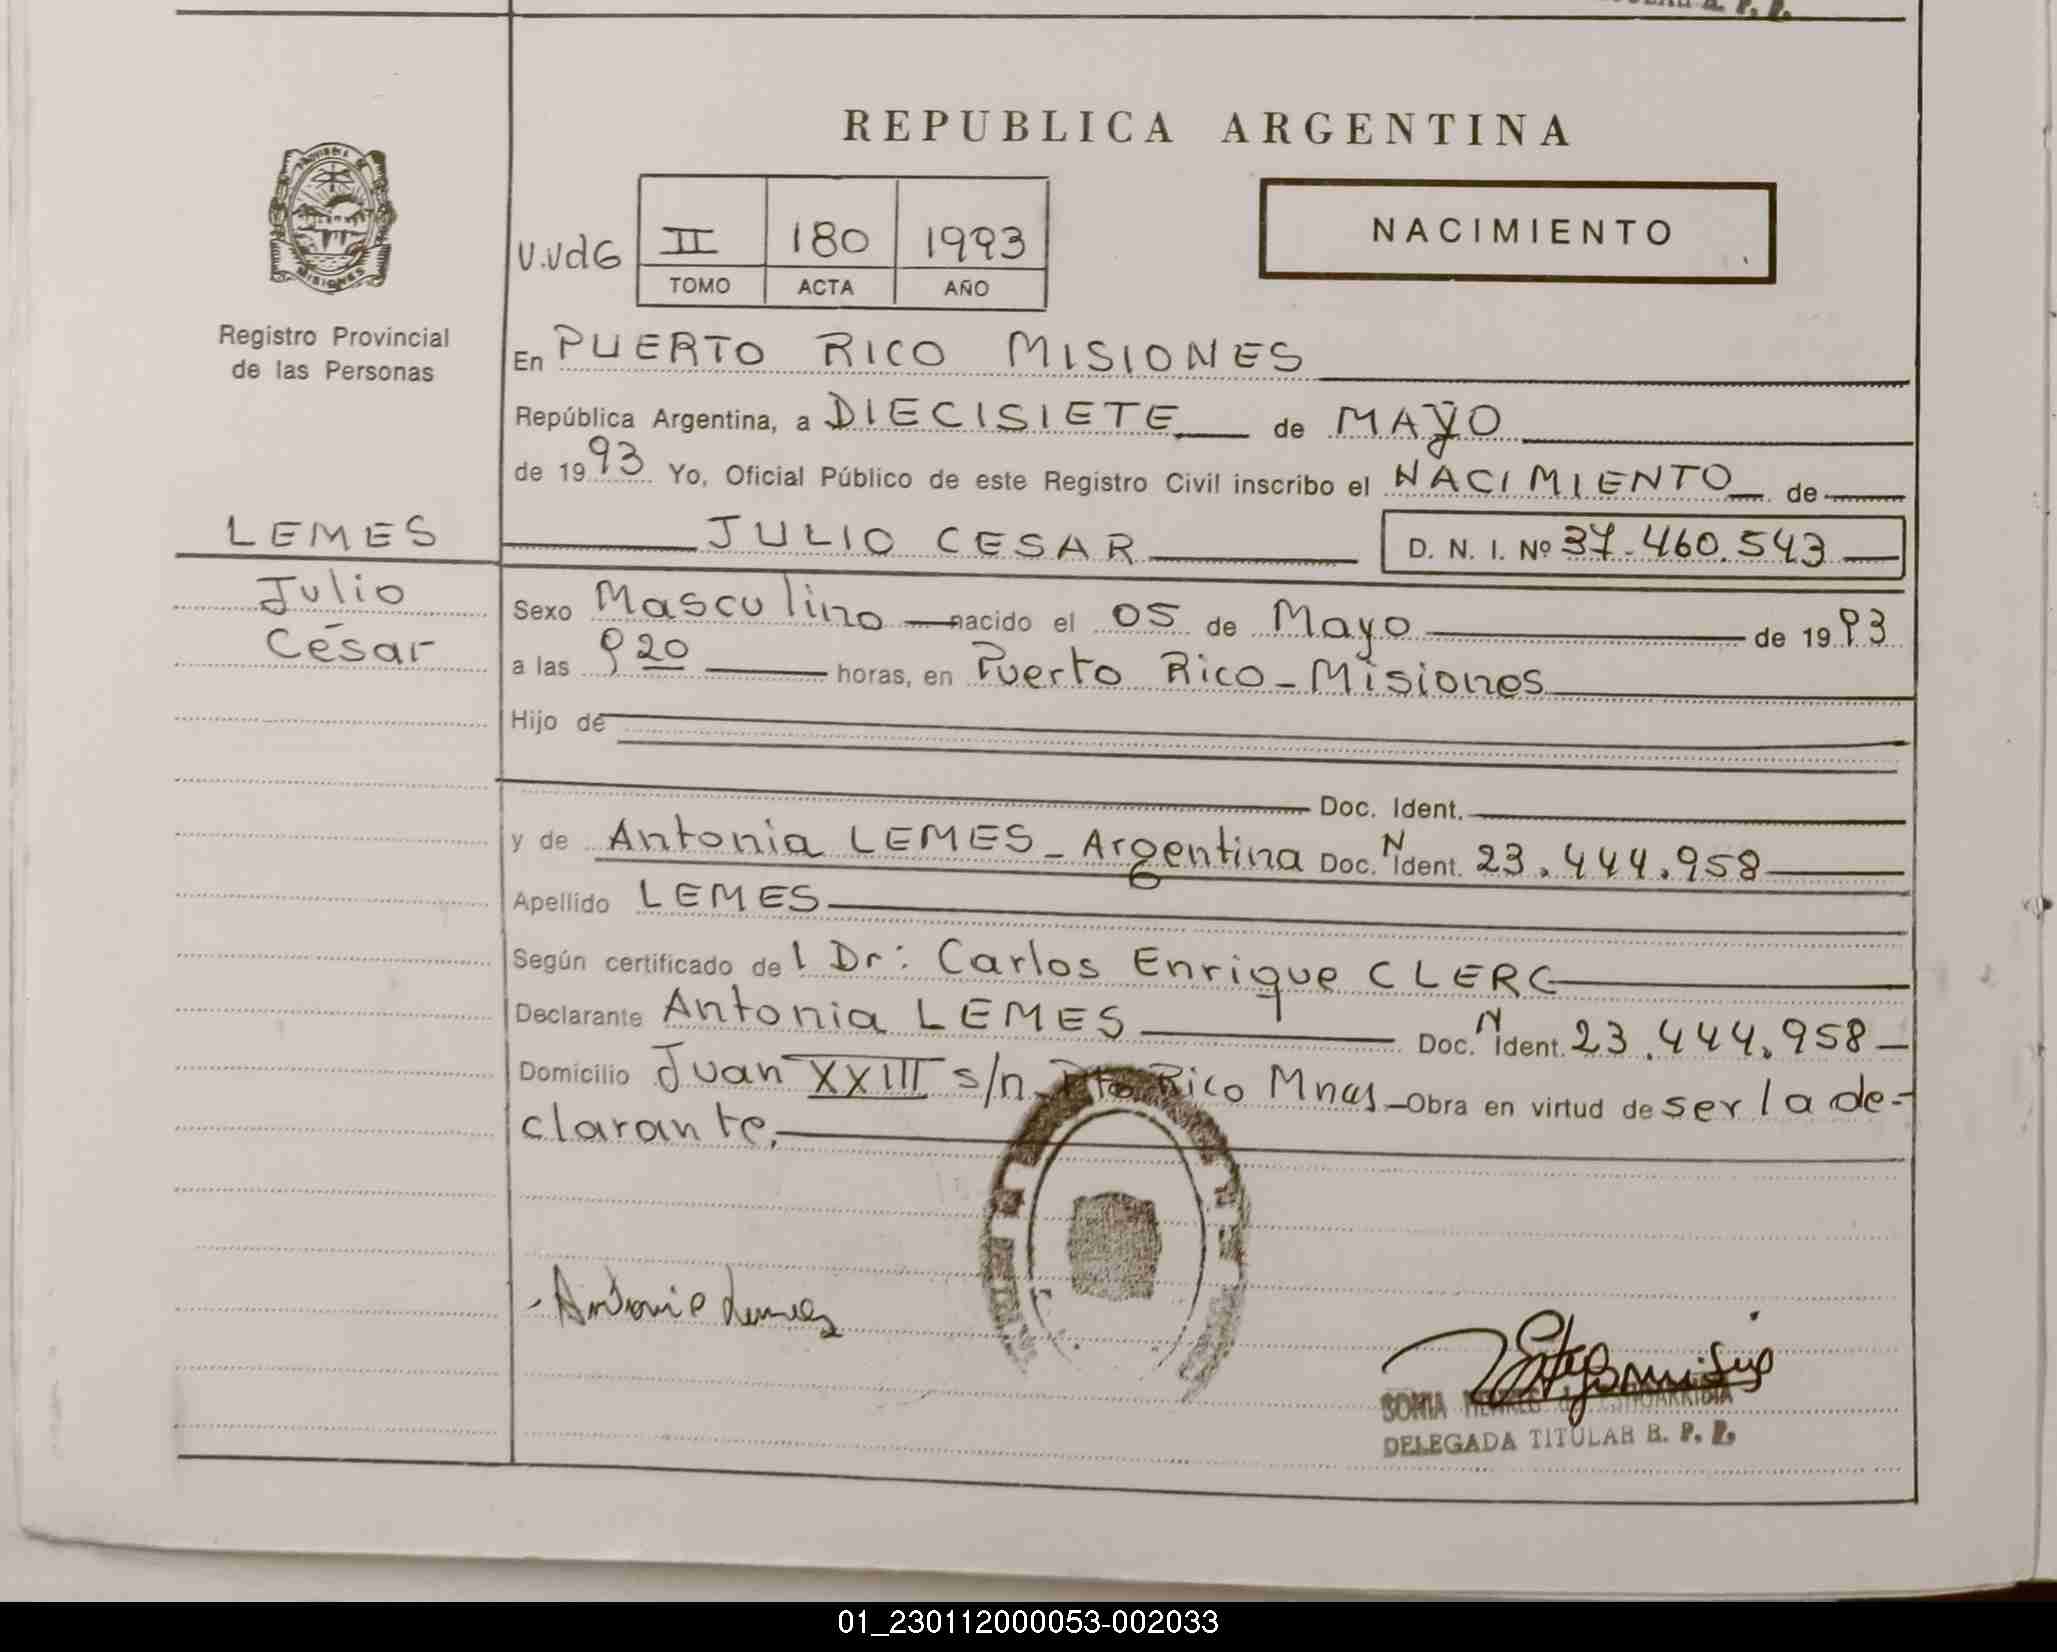 REPUBLICA ARGENTINA
NACIMIENTO
V.VdG
II 180 1993
TOMO ACTA AÑO
Registro Provincial
de las Personas
En PUERTO RICO MISIONES
República Argentina, a DIECISIETE de MAYO
de 1993 Yo, Oficial Público de este Registro Civil inscribo el NACIMIENTO de
LEMES
JULIO CESAR
D. N. I. Nº 37.460.543
Julio
César
Sexo Masculino nacido el 05 de Mayo de 1993
a las 9 20 horas, en Puerto Rico - Misiones
Hijo de
Doc. Ident.
y de Antonia LEMES - Argentina Doc. N Ident. 23.444.958
Apellido LEMES
Según certificado del Dr: Carlos Enrique CLERC
Declarante Antonia LEMES Doc. N Ident. 23.444.958
Domicilio Juan XXIII s/n. Pto Rico Mnes - Obra en virtud de ser la de-
clarante.
Antonia Lemes
SONIA
DELEGADA TITULAR R. P. P.
01_230112000053-002033